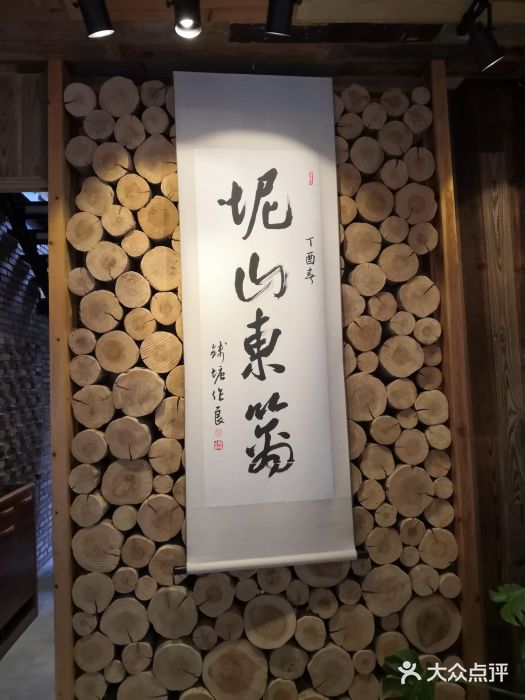 坭山東篱
丁酉春
钱塘作良
大众点评